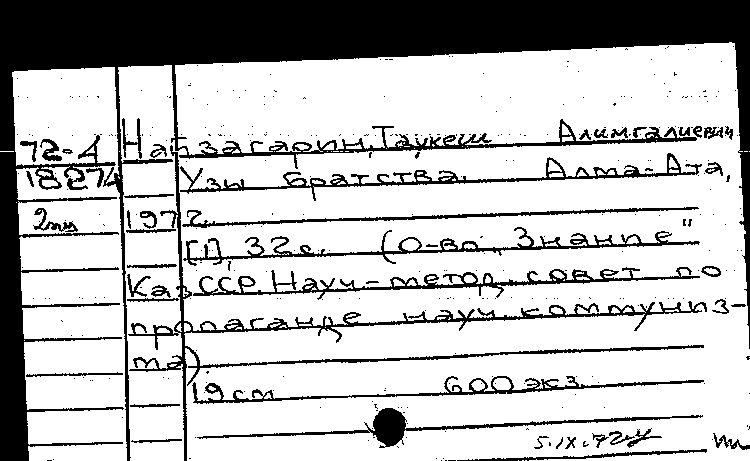 72-4 Найзагарин, Таукеш Алимгалиевич
18274 Узы братства. Алма-Ата,
2 1972.
[1], 32 с. (О-во „Знание"
КазССР. Науч.-метод. совет по
пропаганде науч. коммуниз-
ма).
19 см 600 экз.
5.IX.72